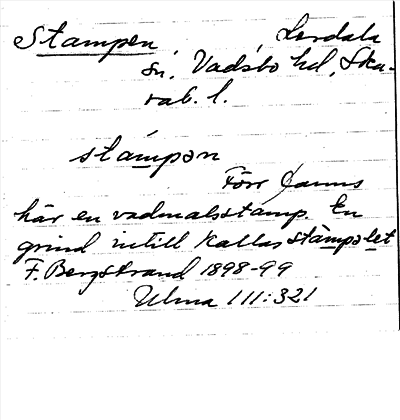 Stampen Lerdala
sn, Vadsbo hd, Ska-
rab. l.
stámpən
Förr fanns
här en vadmalsstamp. En
grind intill kallas stàmpəlet
F. Bergstrand 1898-99
Ulma 111:321